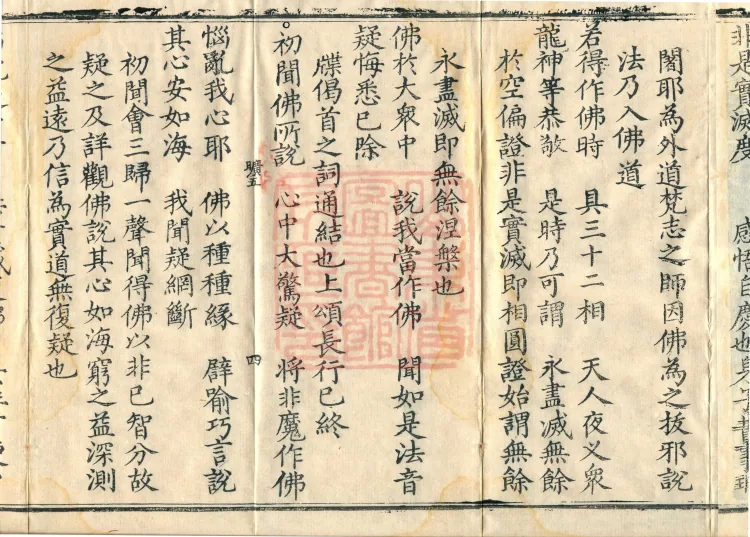 非是實滅度　感悟自慶也身子
闍耶為外道梵志之師因佛為之拔邪說
法乃入佛道
若得作佛時　具三十二相　天人夜叉眾
龍神等恭敬　是時乃可謂　永盡滅無餘
於空偏證非是實滅即相圓證始謂無餘
永盡滅即無餘涅槃也
佛於大眾中　說我當作佛　聞如是法音
疑悔悉已除
牒偈首之詞通結也上頌長行已終
初聞佛所說　心中大驚疑　將非魔作佛
曠五
四
惱亂我心耶　佛以種種緣　譬喻巧言說
其心安如海　我聞疑網斷
初聞會三歸一聲聞得佛以非已智分故
疑之及詳觀佛說其心如海窮之益深測
之益遠乃信為實道無復疑也